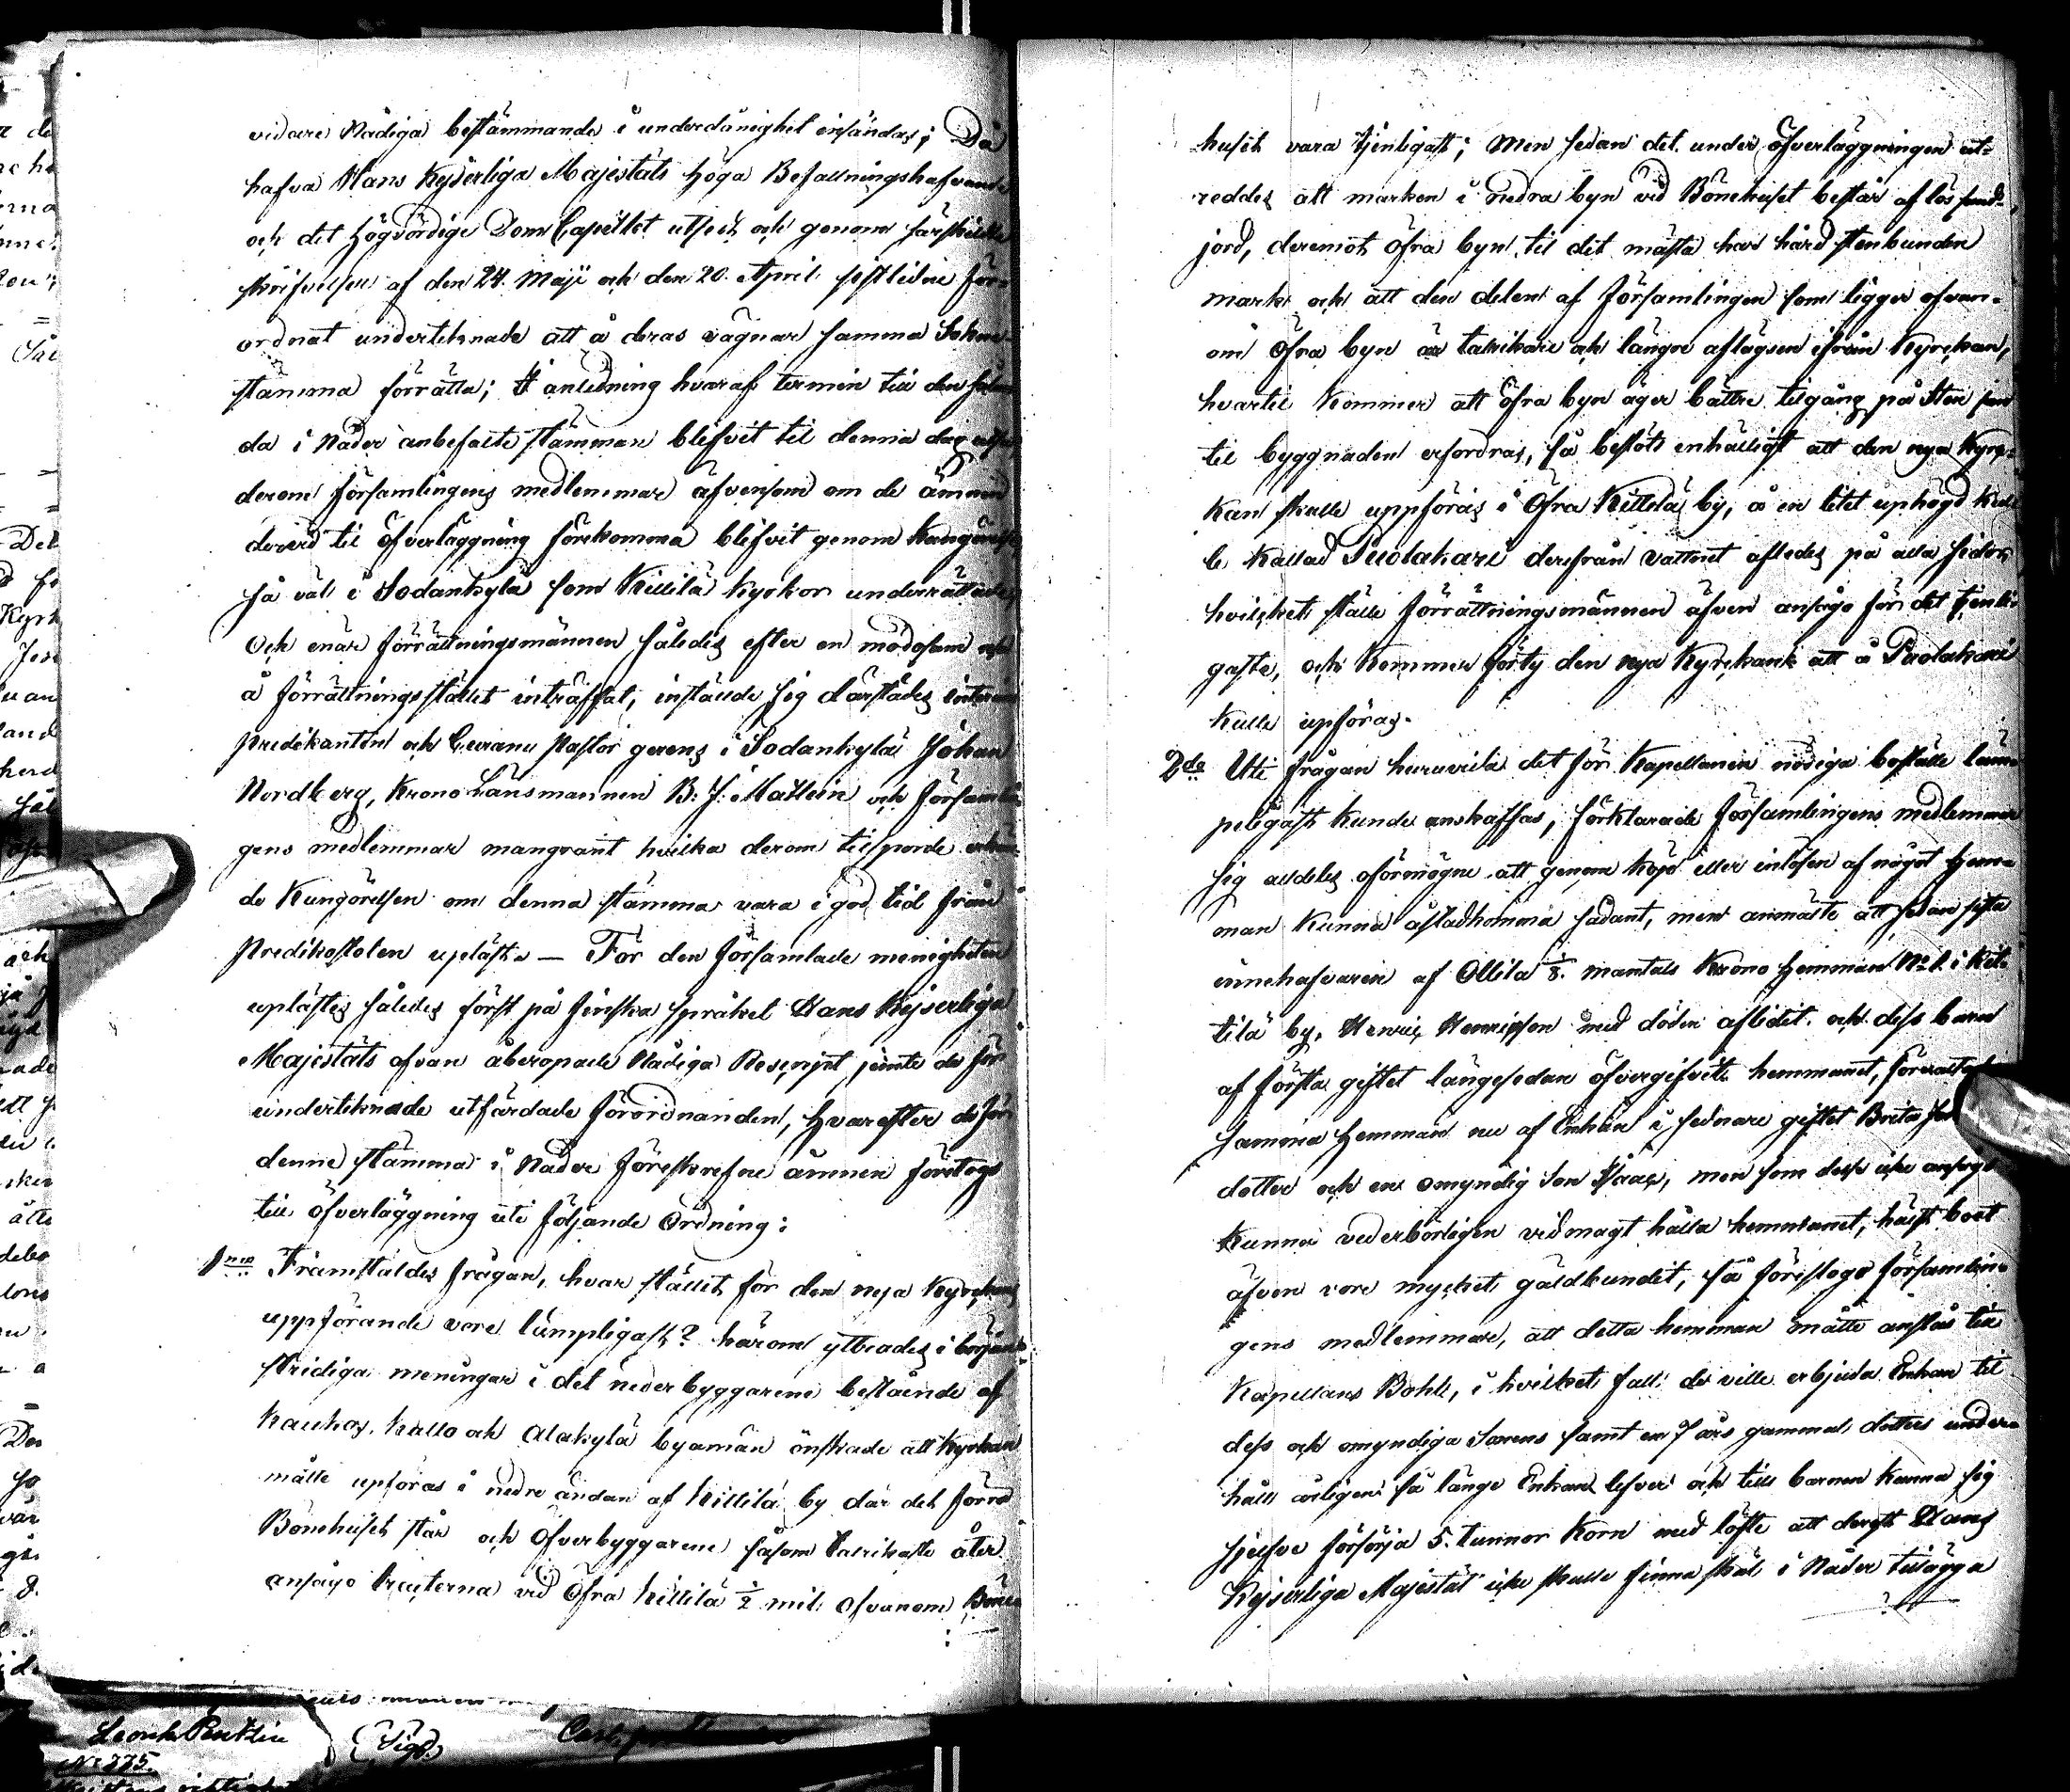 vidare Nådiga bestämmande i underdånighet insändas; Då
hafva Hans Kejserliga Majestäts höga Befallningshafvande
och det Högvördige Dom Capitlet utsedt och genom särskildte
skrifvelser af den 24. Maji och den 20. April sistledne för-
ordnat undertecknade att å deras vägnar samma Sokne-
stämma förrätta; I anledning hvaraf termin till den
da i Nåder anbefalte stämman blifvit til denna dag
derom Församlingens medlemmar äfvensom om de ämnen
dervid til öfverläggning förekomma blifvit genom Kungörelse
så väl i Sodankylä som Kittilä Kyrkor underrättade
Och enär Förrättningsmännen således efter en mödosam
å Förrättningsstället inträffat, inställde sig därstädes
predikanten och Curam Pastor gerens i Sodankylä Johan
Nordberg, Krono Länsmannen B: J: Matlein och Församlin-
gens medlemmar mangrant hvilka derom tilsporde erkän-
de Kungörelsen om denna stämma vara i god tid från
Predikostolen upläst. — För den församlade menigheten
uplästes således först på finska språket Hans Kejserliga
Majestäts ofvan åberopade Nådiga Rescript jämte de för
undertecknade utfärdade förordnanden, hvarefter de för
denne stämma i Nåder föreskrefne ämnen företogs
till öfverläggning uti följande Ordning:
1mo Framstäldes frågan, hvar stället för den nya Kyrckans
uppförande vore lämpligast? härom yttrades i början
stridiga meningar i det nederbyggarene bestående af
Kaukos, Kallo och Alakylä byamän önskade att Kyrkan
måtte upföras i nedre ändan af Kittilä by där det förra
Bönehuset står och Öfverbyggarene såsom talrikaste åter
ansågo trackterna vid Öfra Kittilä ½ mil ofvanom Böne-
huset vara tjenligast; Men sedan det under Öfverläggningen ut-
reddes att marken i nedra byn vid Bönehuset består af lös sand-
jord, deremot Öfra byn til det mästa har hård stenbunden
mark och att den delen af Församlingen som ligger ofvan-
om Öfra byn är talrikare och längre aflägsen ifrån Kyrckan,
hvartil kommer att Öfra byn äger bättre tilgång på Sten som
til byggnaden erfordras, så beslöts enhälligt att den nya Kyrc-
kan skulle uppföras i Öfra Kittilä by, å en litet uphögd kul-
le kallad Puolakari derifrån vattnet afledes på alla sidor
hvilcket ställe förrättningsmännen äfven ansågo för det tjenli-
gaste, och kommer förty den nya Kyrckank att å Puolakari
kulle upföras.
2do Uti frågan huruvida det för Kapellanen nödiga boställe läm-
peligast kunde anskaffas, förklarade Församlingens medlemmar
sig alldeles oförmögne att genom köp eller inlösen af något hem-
man kunna åstadkomma sådant, men anmälte att sedan sista
innehafvaren af Ollila ⅛ mantals Krono hemman No 1. i Kit-
tilä by, Henric Henricsson med döden aflidit. och dess barn
af första giftet längesedan öfvergifvit hemmanet,
samma Hemman nu af Enkan i sednare giftet Brita
dotter och en omyndig Son Isaac, men som desse icke
kunna vederbörligen vidmagt hålla hemmanet, hälst boet
äfven vore mycket gäldbundit, så föreslogo Församlin-
gens medlemmar, att detta hemman måtte anslås till
Kapellans Bohl, i hvilket fall de ville erbjuda Enkan til
dess och omyndiga Sonens samt en 7 års gammal dotters under-
håll årligen så länge Enkan lefver och till barnen kunna sig
sjelfve försörja 5. tunnor Korn med löfte att derest Hans
Kejserliga Majestät icke skulle finna skäl i Nåder tillägga
No 275.